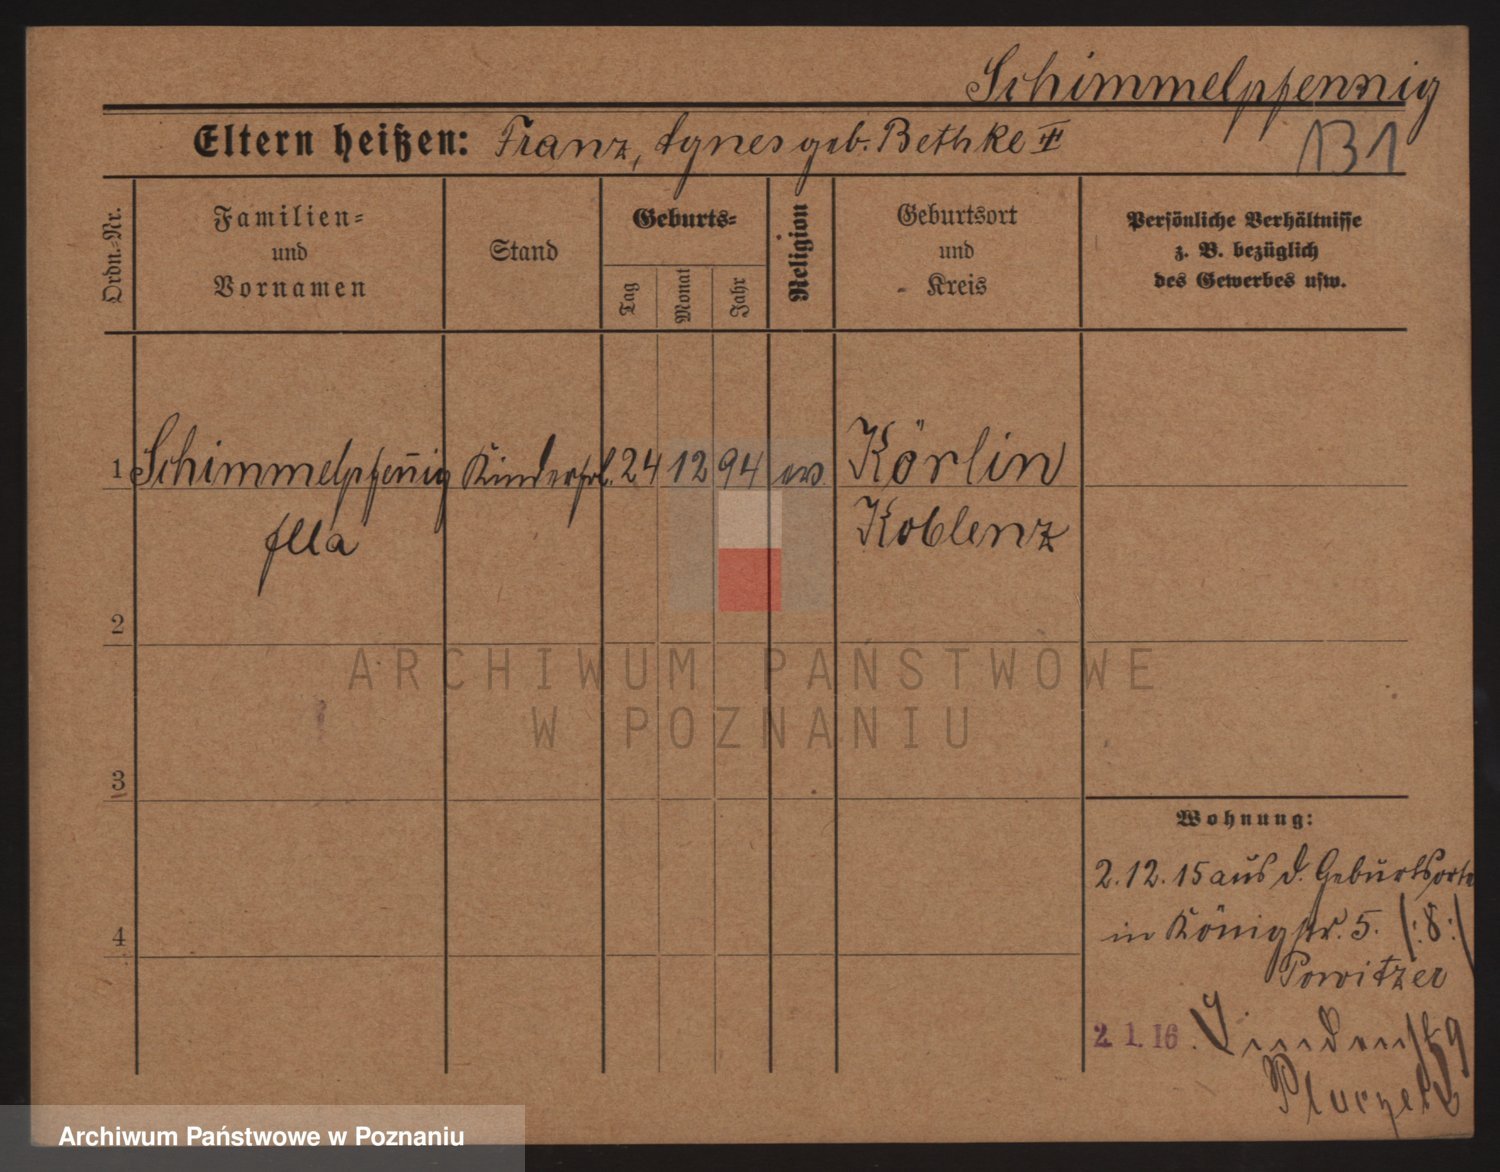 Schimmelpfennig
Eltern heißen: Franz, Agnes geb. Bethke ##
131
Ordn.-Nr.
Familien-
und
Vornamen
Stand
Geburts-
Tag
Monat
Jahr
Religion
Geburtsort
und
Kreis
Persönliche Verhältnisse
z. B. bezüglich
des Gewerbes usw.
1 Schimmelpfeñig Kinderfrl. 24 12 94 ev Körlin
Ella Koblenz
2
ARCHIWUM PAŃSTWOWE
W POZNANIU
3
Wohnung:
2.12.15 aus d. Geburtsorte
4
in Königstr. 5. /:8:/
Powitzer
2. 1. 16. Lindenst 9
Archiwum Państwowe w Poznaniu